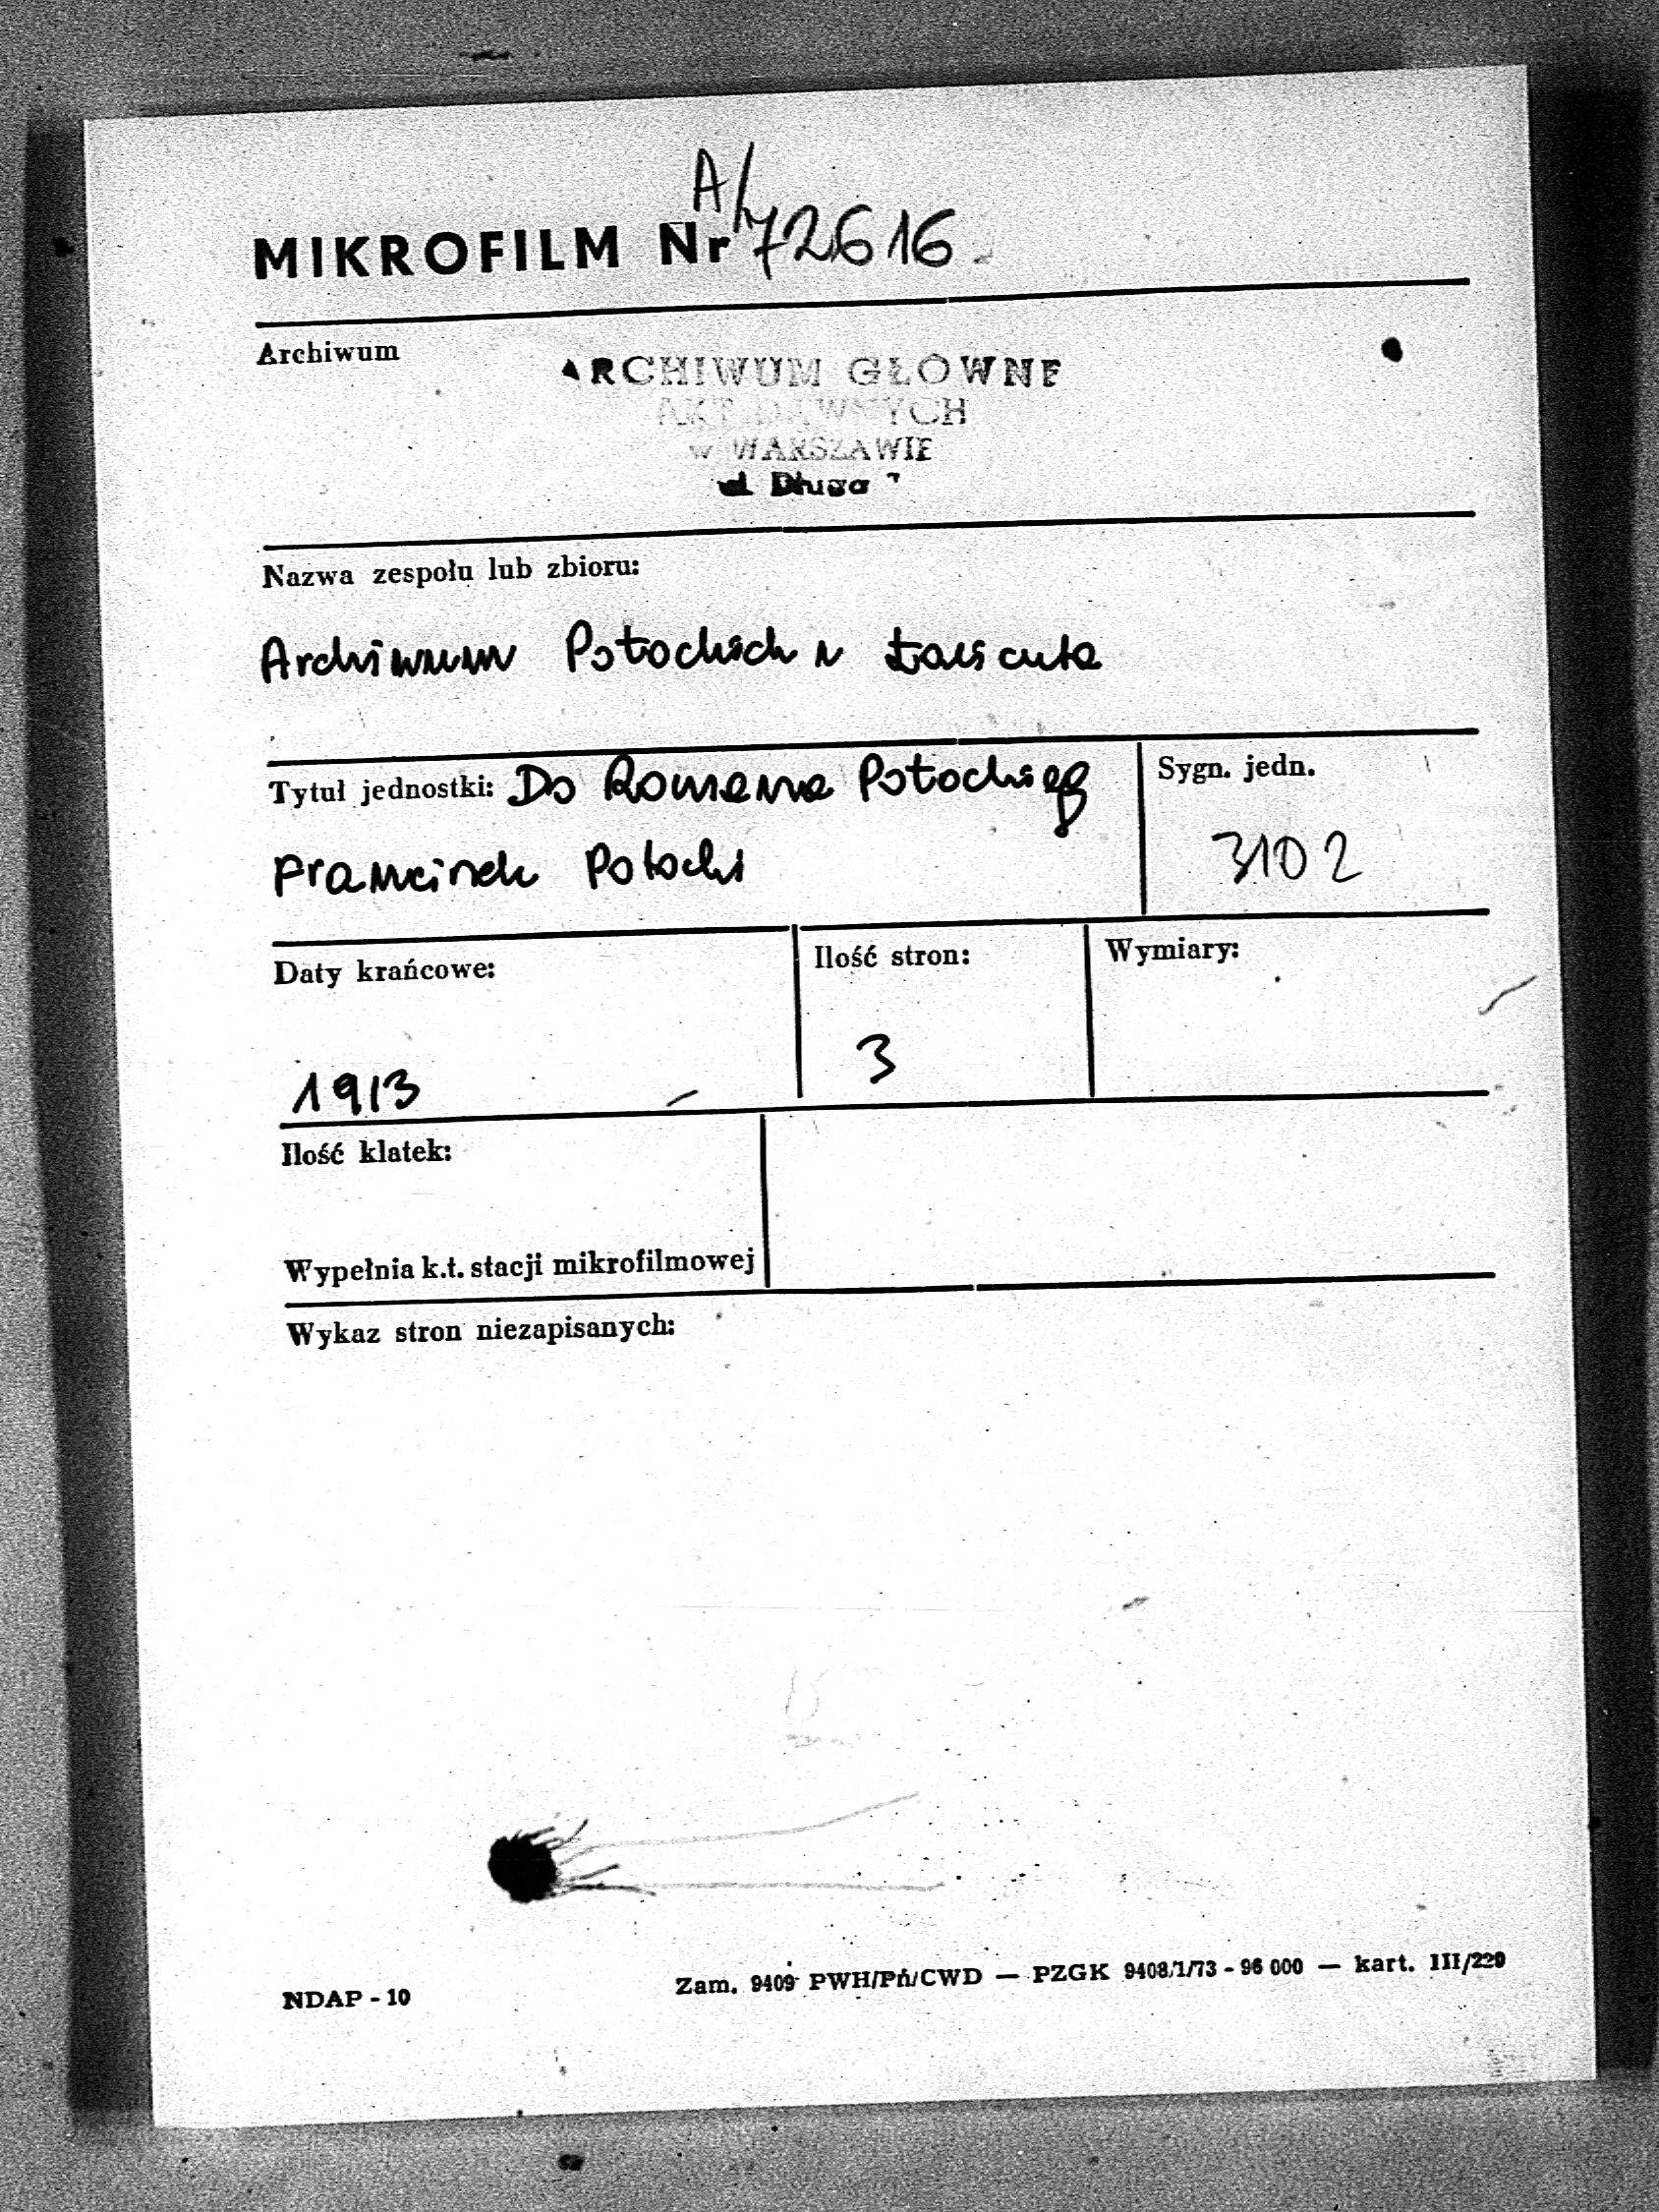 A/
MIKROFILM Nr 72616
Archiwum
ARCHIWUM GŁÓWNE
AKT DAWNYCH
w WARSZAWIE
ul. Długa 7
Nazwa zespołu lub zbioru:
Archiwum Potockich z Łańcuta
Tytuł jednostki: Do Romana Potockiego
Sygn. jedn.
Franciszek Potocki
3102
Daty krańcowe:
Ilość stron:
Wymiary:
1913
3
Ilość klatek:
Wypełnia k.t. stacji mikrofilmowej
Wykaz stron niezapisanych:
NDAP - 10
Zam. 9409 PWH/Pń/CWD — PZGK 9408/1/73 - 96 000 — kart. III/229